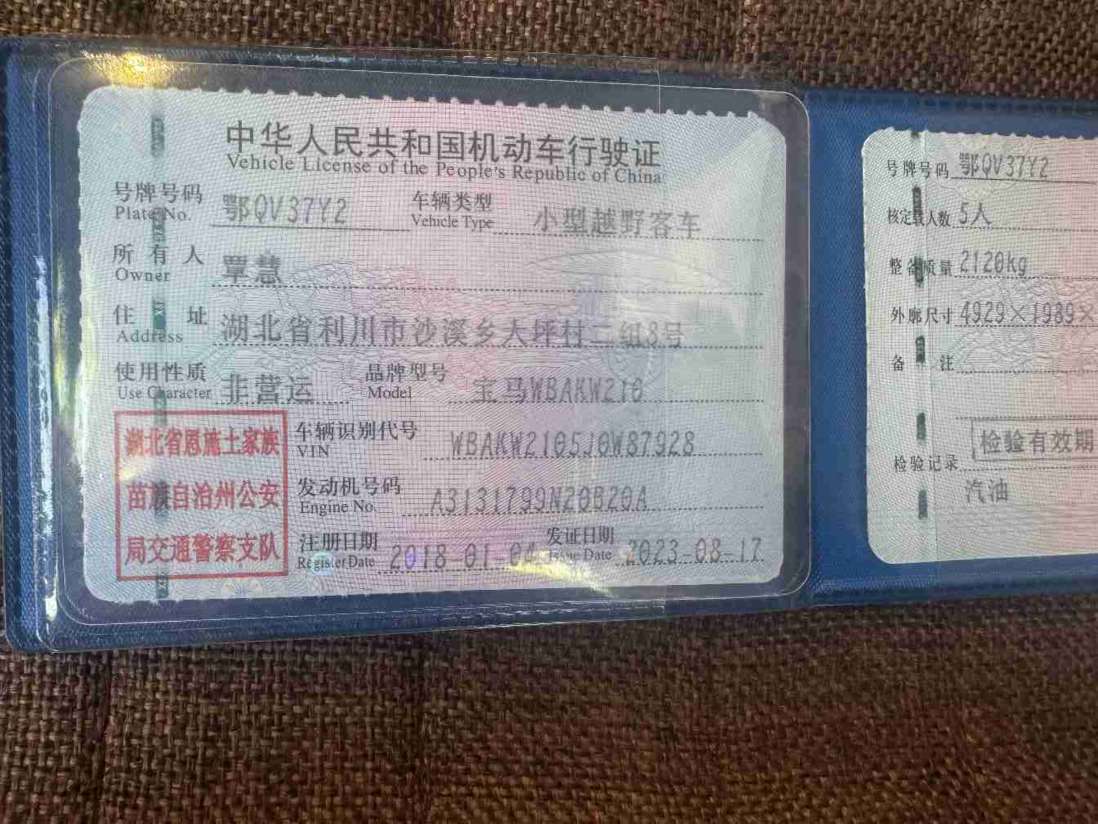 中华人民共和国机动车行驶证
Vehicle License of the People's Republic of China
号牌号码 鄂QV37Y2 车辆类型 小型越野客车
Plate No. Vehicle Type
所有人 覃慧
Owner
住址 湖北省利川市沙溪乡大坪村二组8号
Address
使用性质 非营运 品牌型号 宝马WBAKW210
Use Character Model
湖北省恩施土家族
苗族自治州公安
局交通警察支队
车辆识别代号 WBAKW2105J0W87928
VIN
发动机号码 A3131799N20B20A
Engine No.
注册日期 2018-01-04 发证日期 2023-08-17
Register Date Issue Date
号牌号码 鄂QV37Y2
核定载人数 5人
整备质量 2120kg
外廓尺寸 4929×1989×
备注
检验有效期
检验记录
汽油